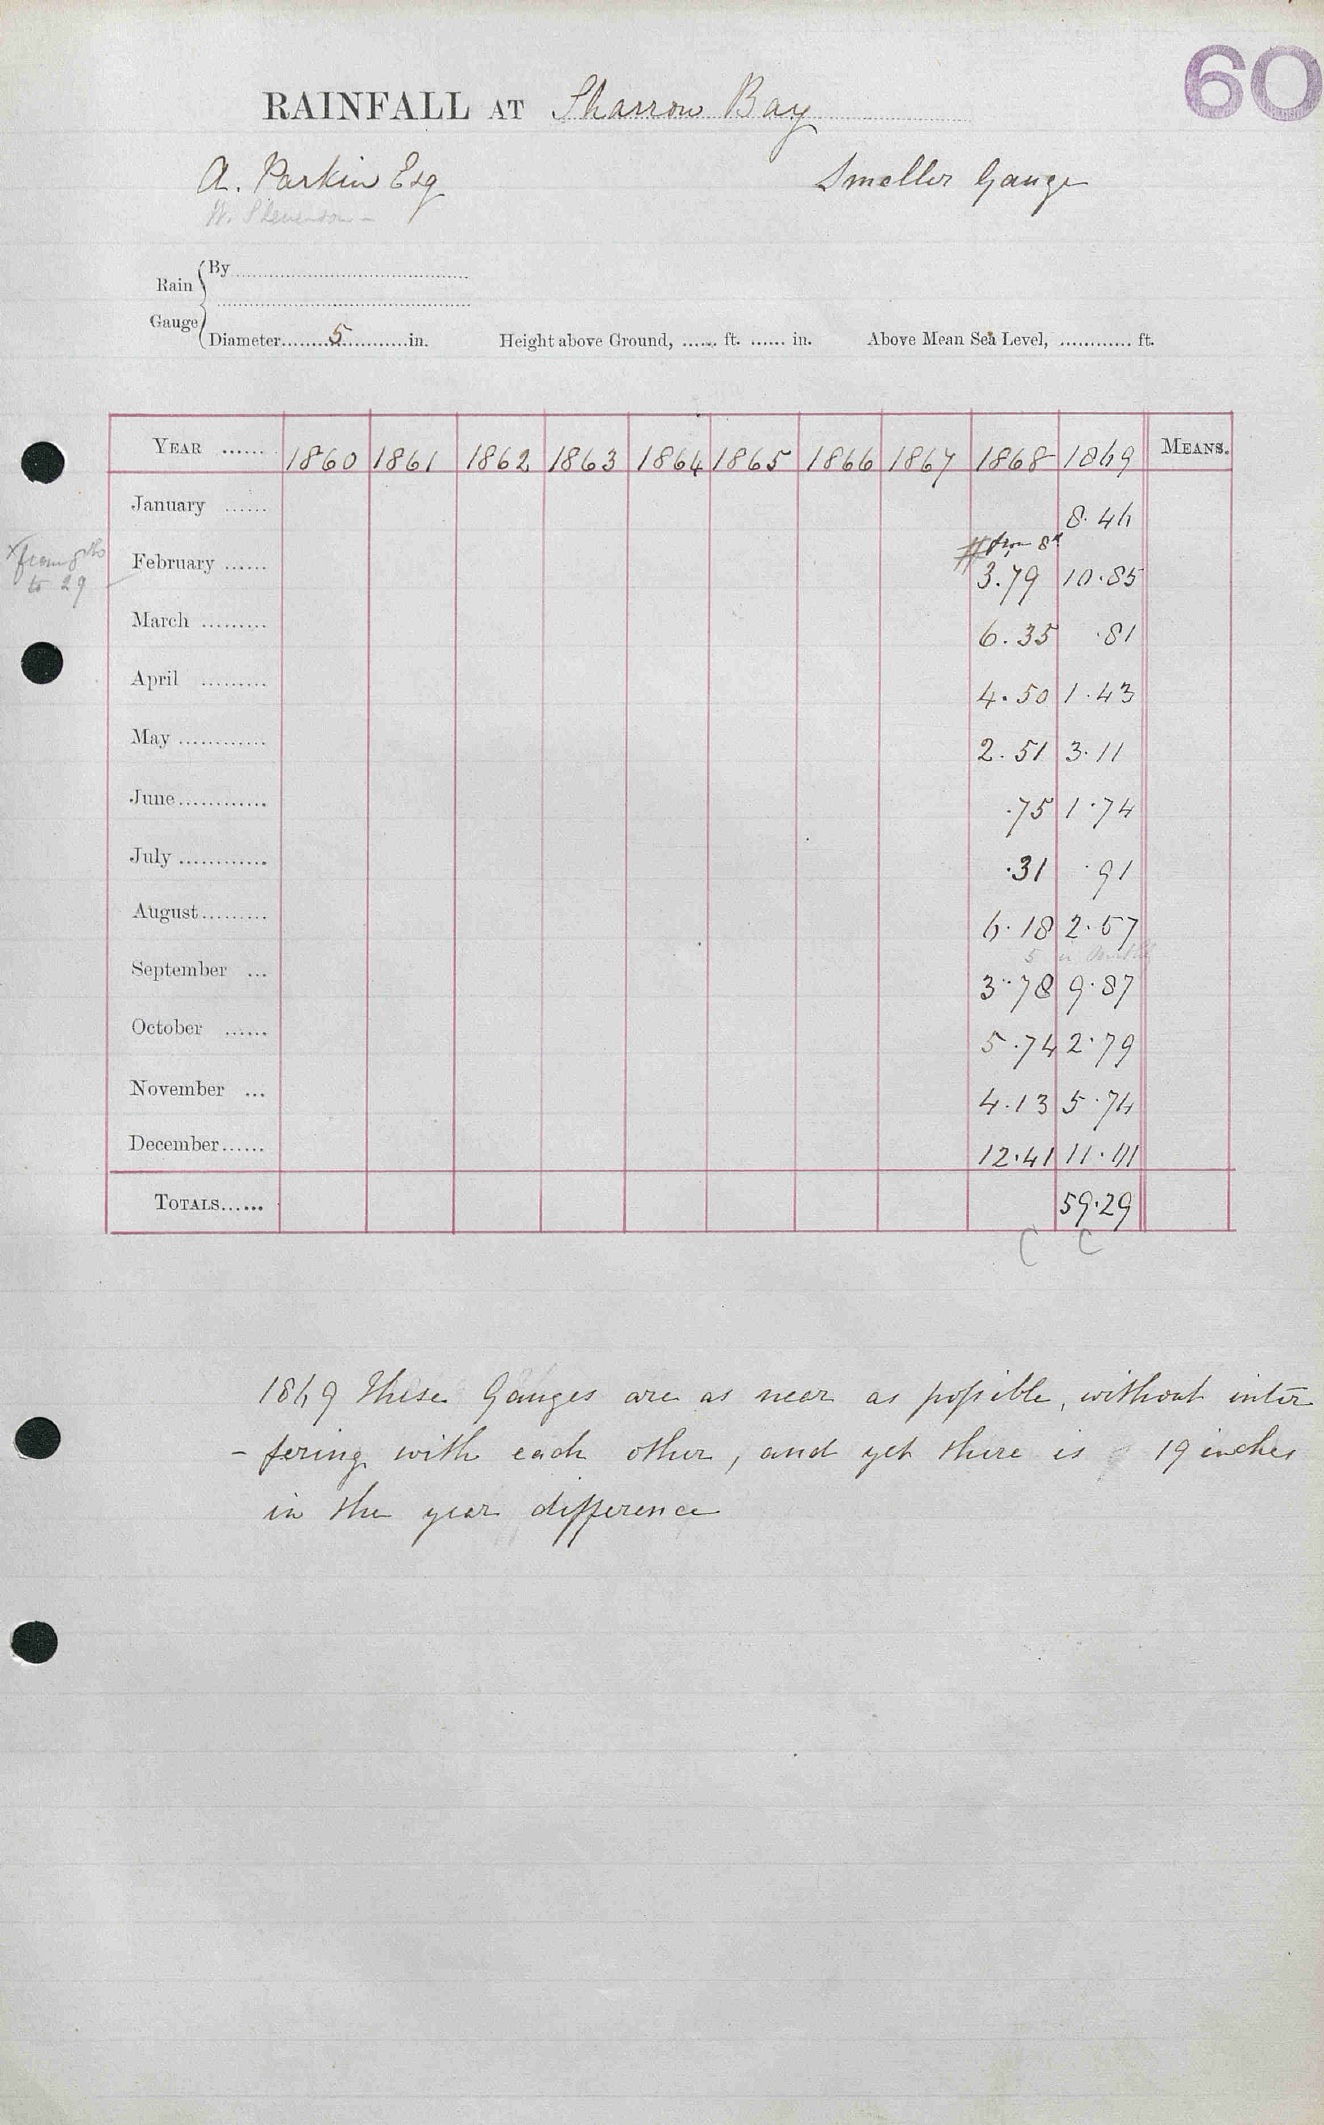 60
RAINFALL AT Sharrow Bay
A. Parkin Esq Smaller Gauge
W. Stevenson -
Rain Gauge
By
Diameter 5 in. Height above Ground, ...... ft. ...... in. Above Mean Sea Level, ............ ft.
YEAR ...... 1860 1861 1862 1863 1864 1865 1866 1867 1868 1869 MEANS.
January ...... 8.46
# from 8th
x from 8th to 29
February ...... 3.79 10.85
March ......... 6.35 .81
April ......... 4.50 1.43
May ............ 2.51 3.11
June ............ .75 1.74
July ............ .31 .91
August ......... 6.18 2.57
5
September ... 3.78 9.87
October ...... 5.74 2.79
November ... 4.13 5.74
December ...... 12.41 11.01
TOTALS ...... 59.29
C C
1869 These Gauges are as near as possible, without inter
- fering with each other, and yet there is 19 inches
in the year difference